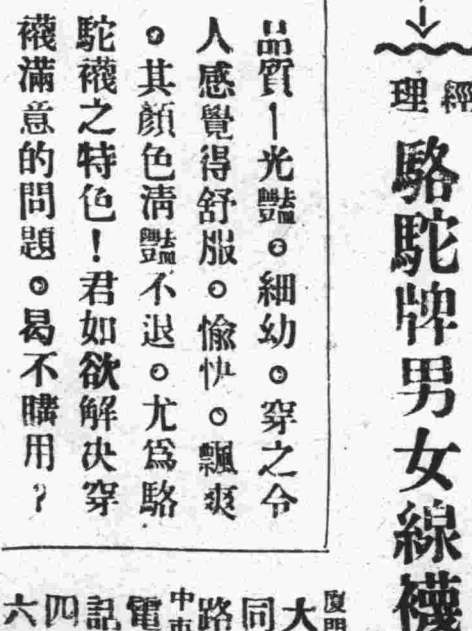 經理
駱駝牌男女線襪
品質—光豔。細幼。穿之令
人感覺得舒服。愉快。飄爽
。其顏色清豔不退。尤爲駱
駝襪之特色!君如欲解决穿
襪滿意的問題。曷不購用?
廈門大同路中電話四六